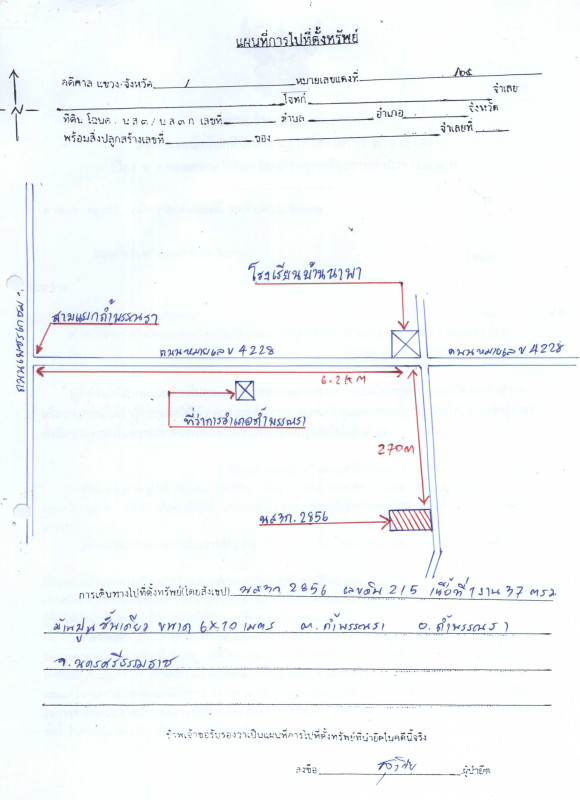 แผนที่การไปที่ตั้งทรัพย์
คดีศาล แขวง/จังหวัด / หมายเลขแดงที่ /๒๕
โจทก์ จำเลย
ที่ดิน โฉนด , น ส ๓ / น ส ๓ ก เลขที่ ตำบล อำเภอ จังหวัด
พร้อมสิ่งปลูกสร้างเลขที่ ของ จำเลยที่
โรงเรียนบ้านนาพา
สามแยกถ้ำพรรณรา
ถนนหมายเลข 4228
ถนนหมายเลข 4228
ถนนเพชรเกษม
6.2 KM
ที่ว่าการอำเภอถ้ำพรรณรา
270 M
นส3ก. 2856
การเดินทางไปที่ตั้งทรัพย์(โดยสังเขป) นส3ก 2856 เลขดิน 215 เนื้อที่ 1 งาน 37 ตรว
บ้านปูนชั้นเดียว ขนาด 6x10 เมตร ต. ถ้ำพรรณรา อ. ถ้ำพรรณรา
จ. นครศรีธรรมราช
ข้าพเจ้าขอรับรองว่าเป็นแผนที่การไปที่ตั้งทรัพย์ที่นำยึดในคดีนี้จริง
ลงชื่อ ผู้นำยึด